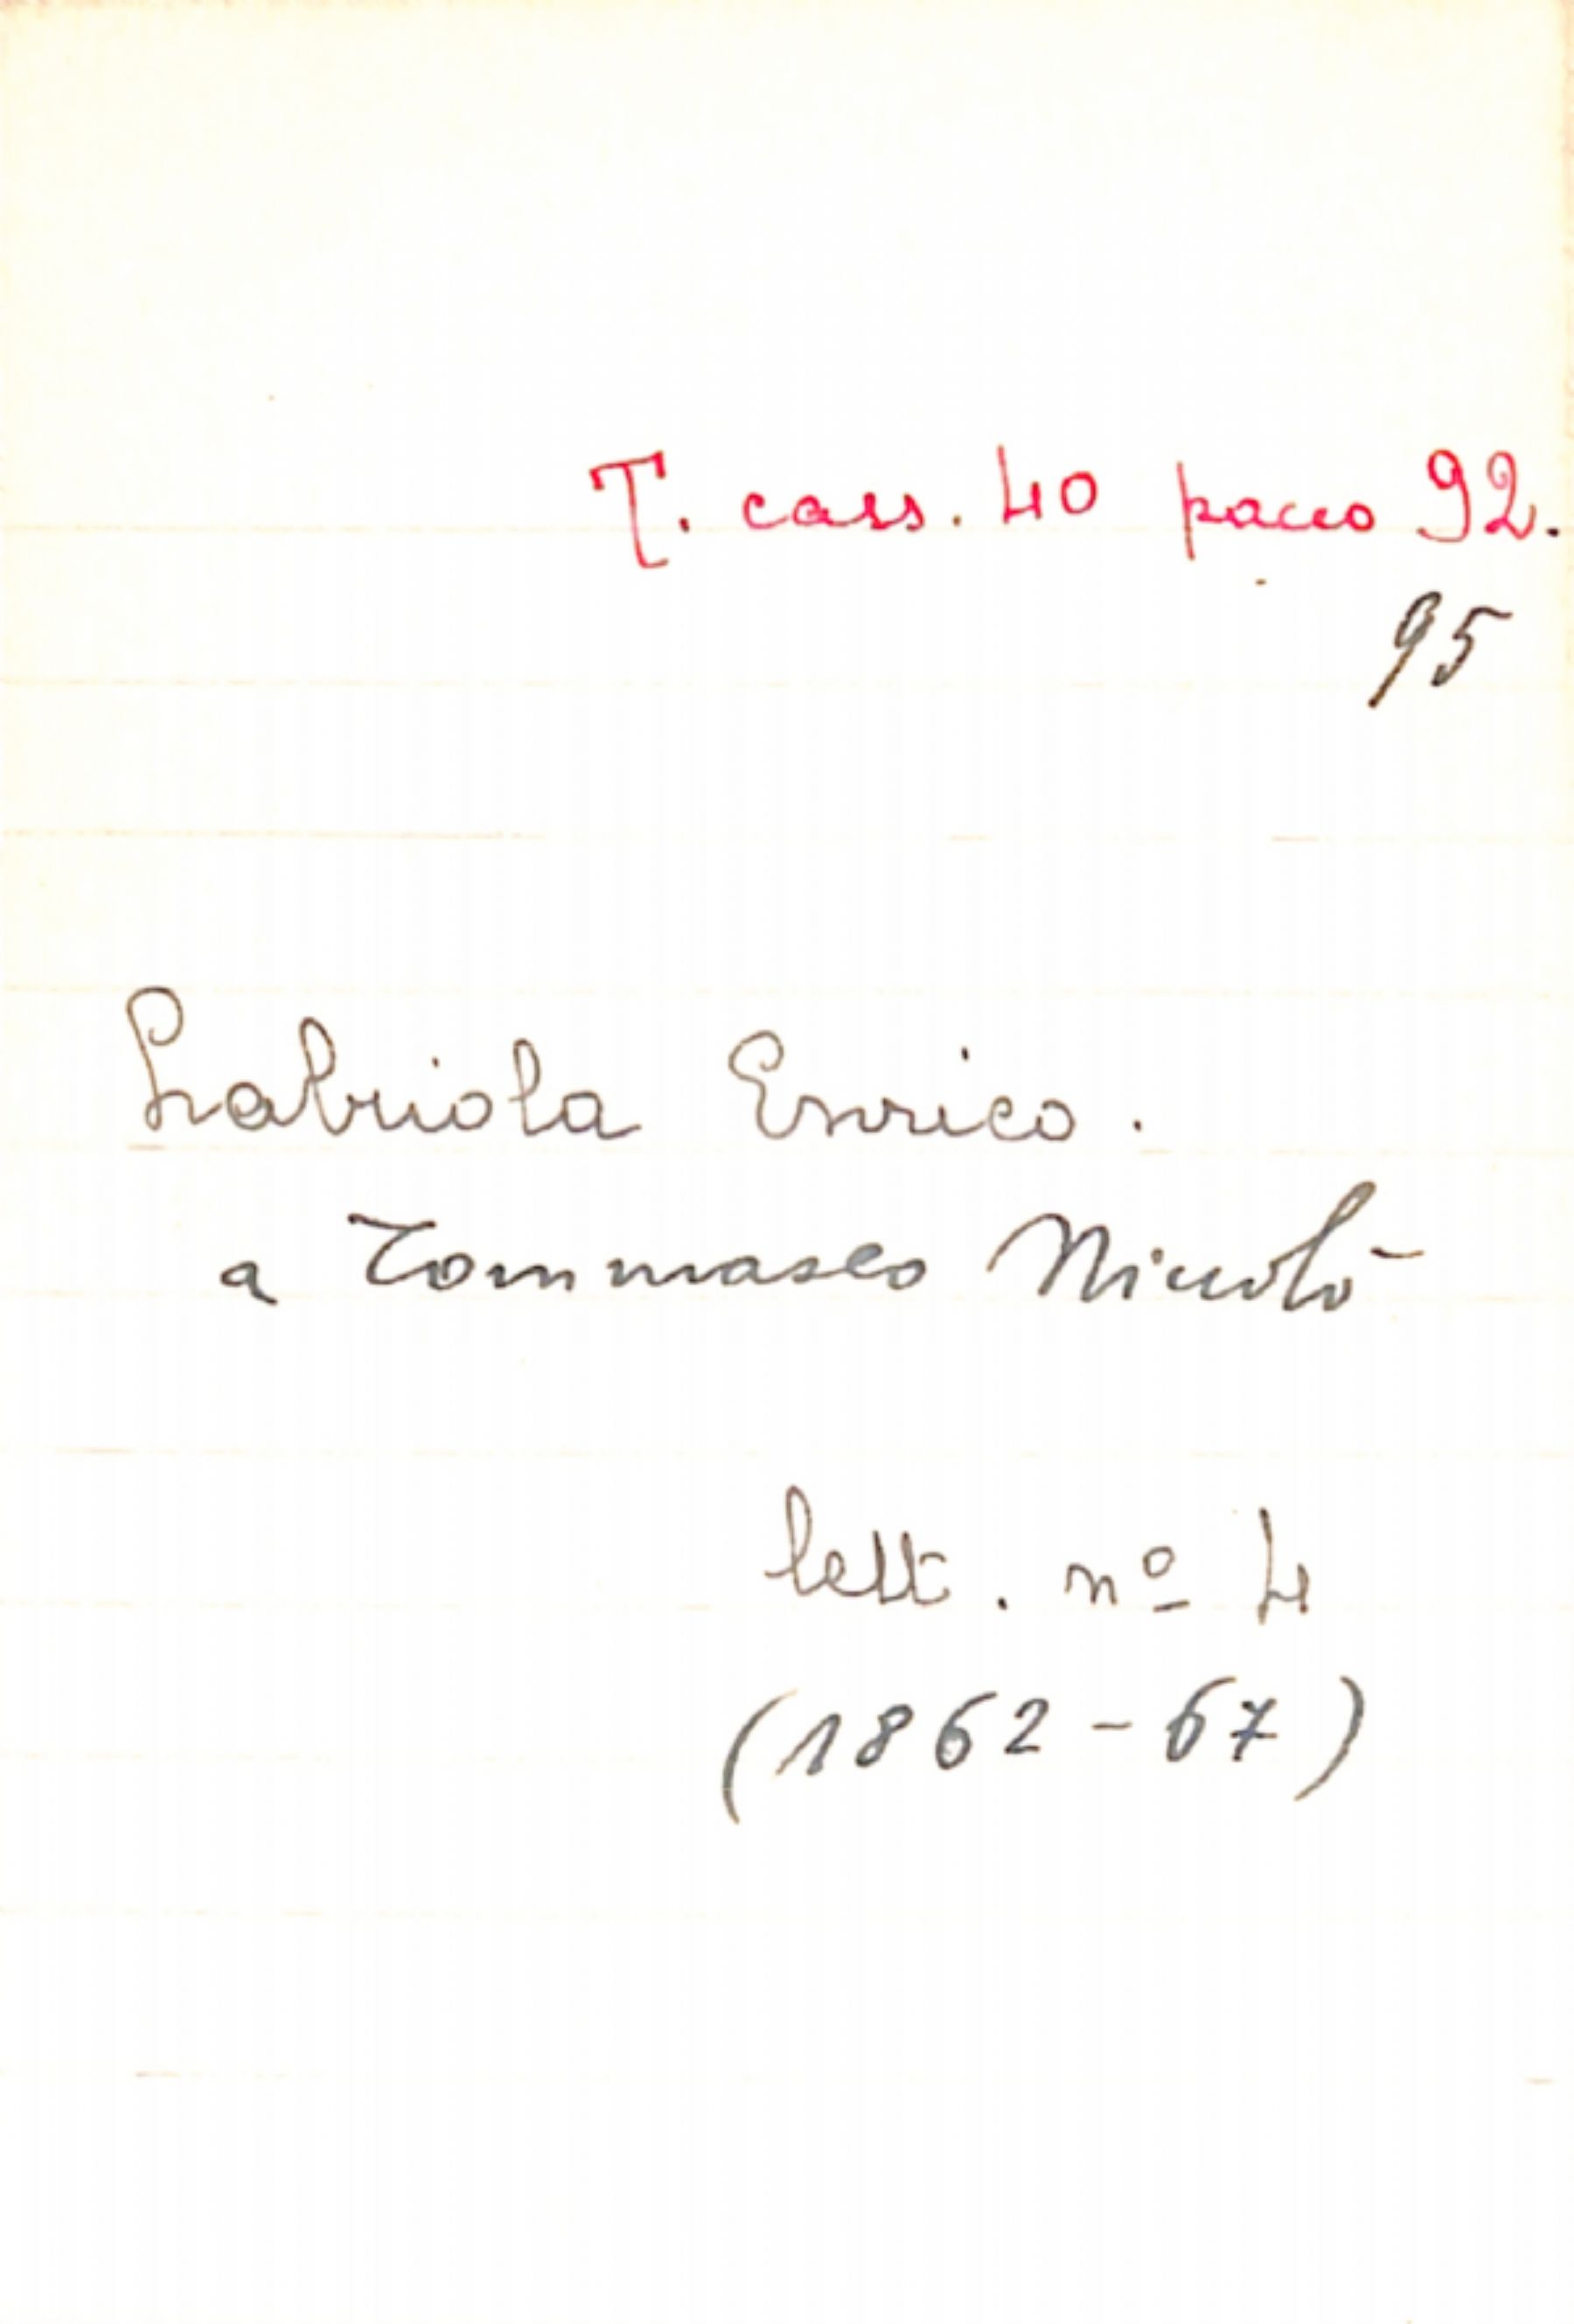 T. cass. 40 pacco 92.
95
Labriola Enrico.
a Tommaseo Niccolò
lett. nº 4
(1862-67)